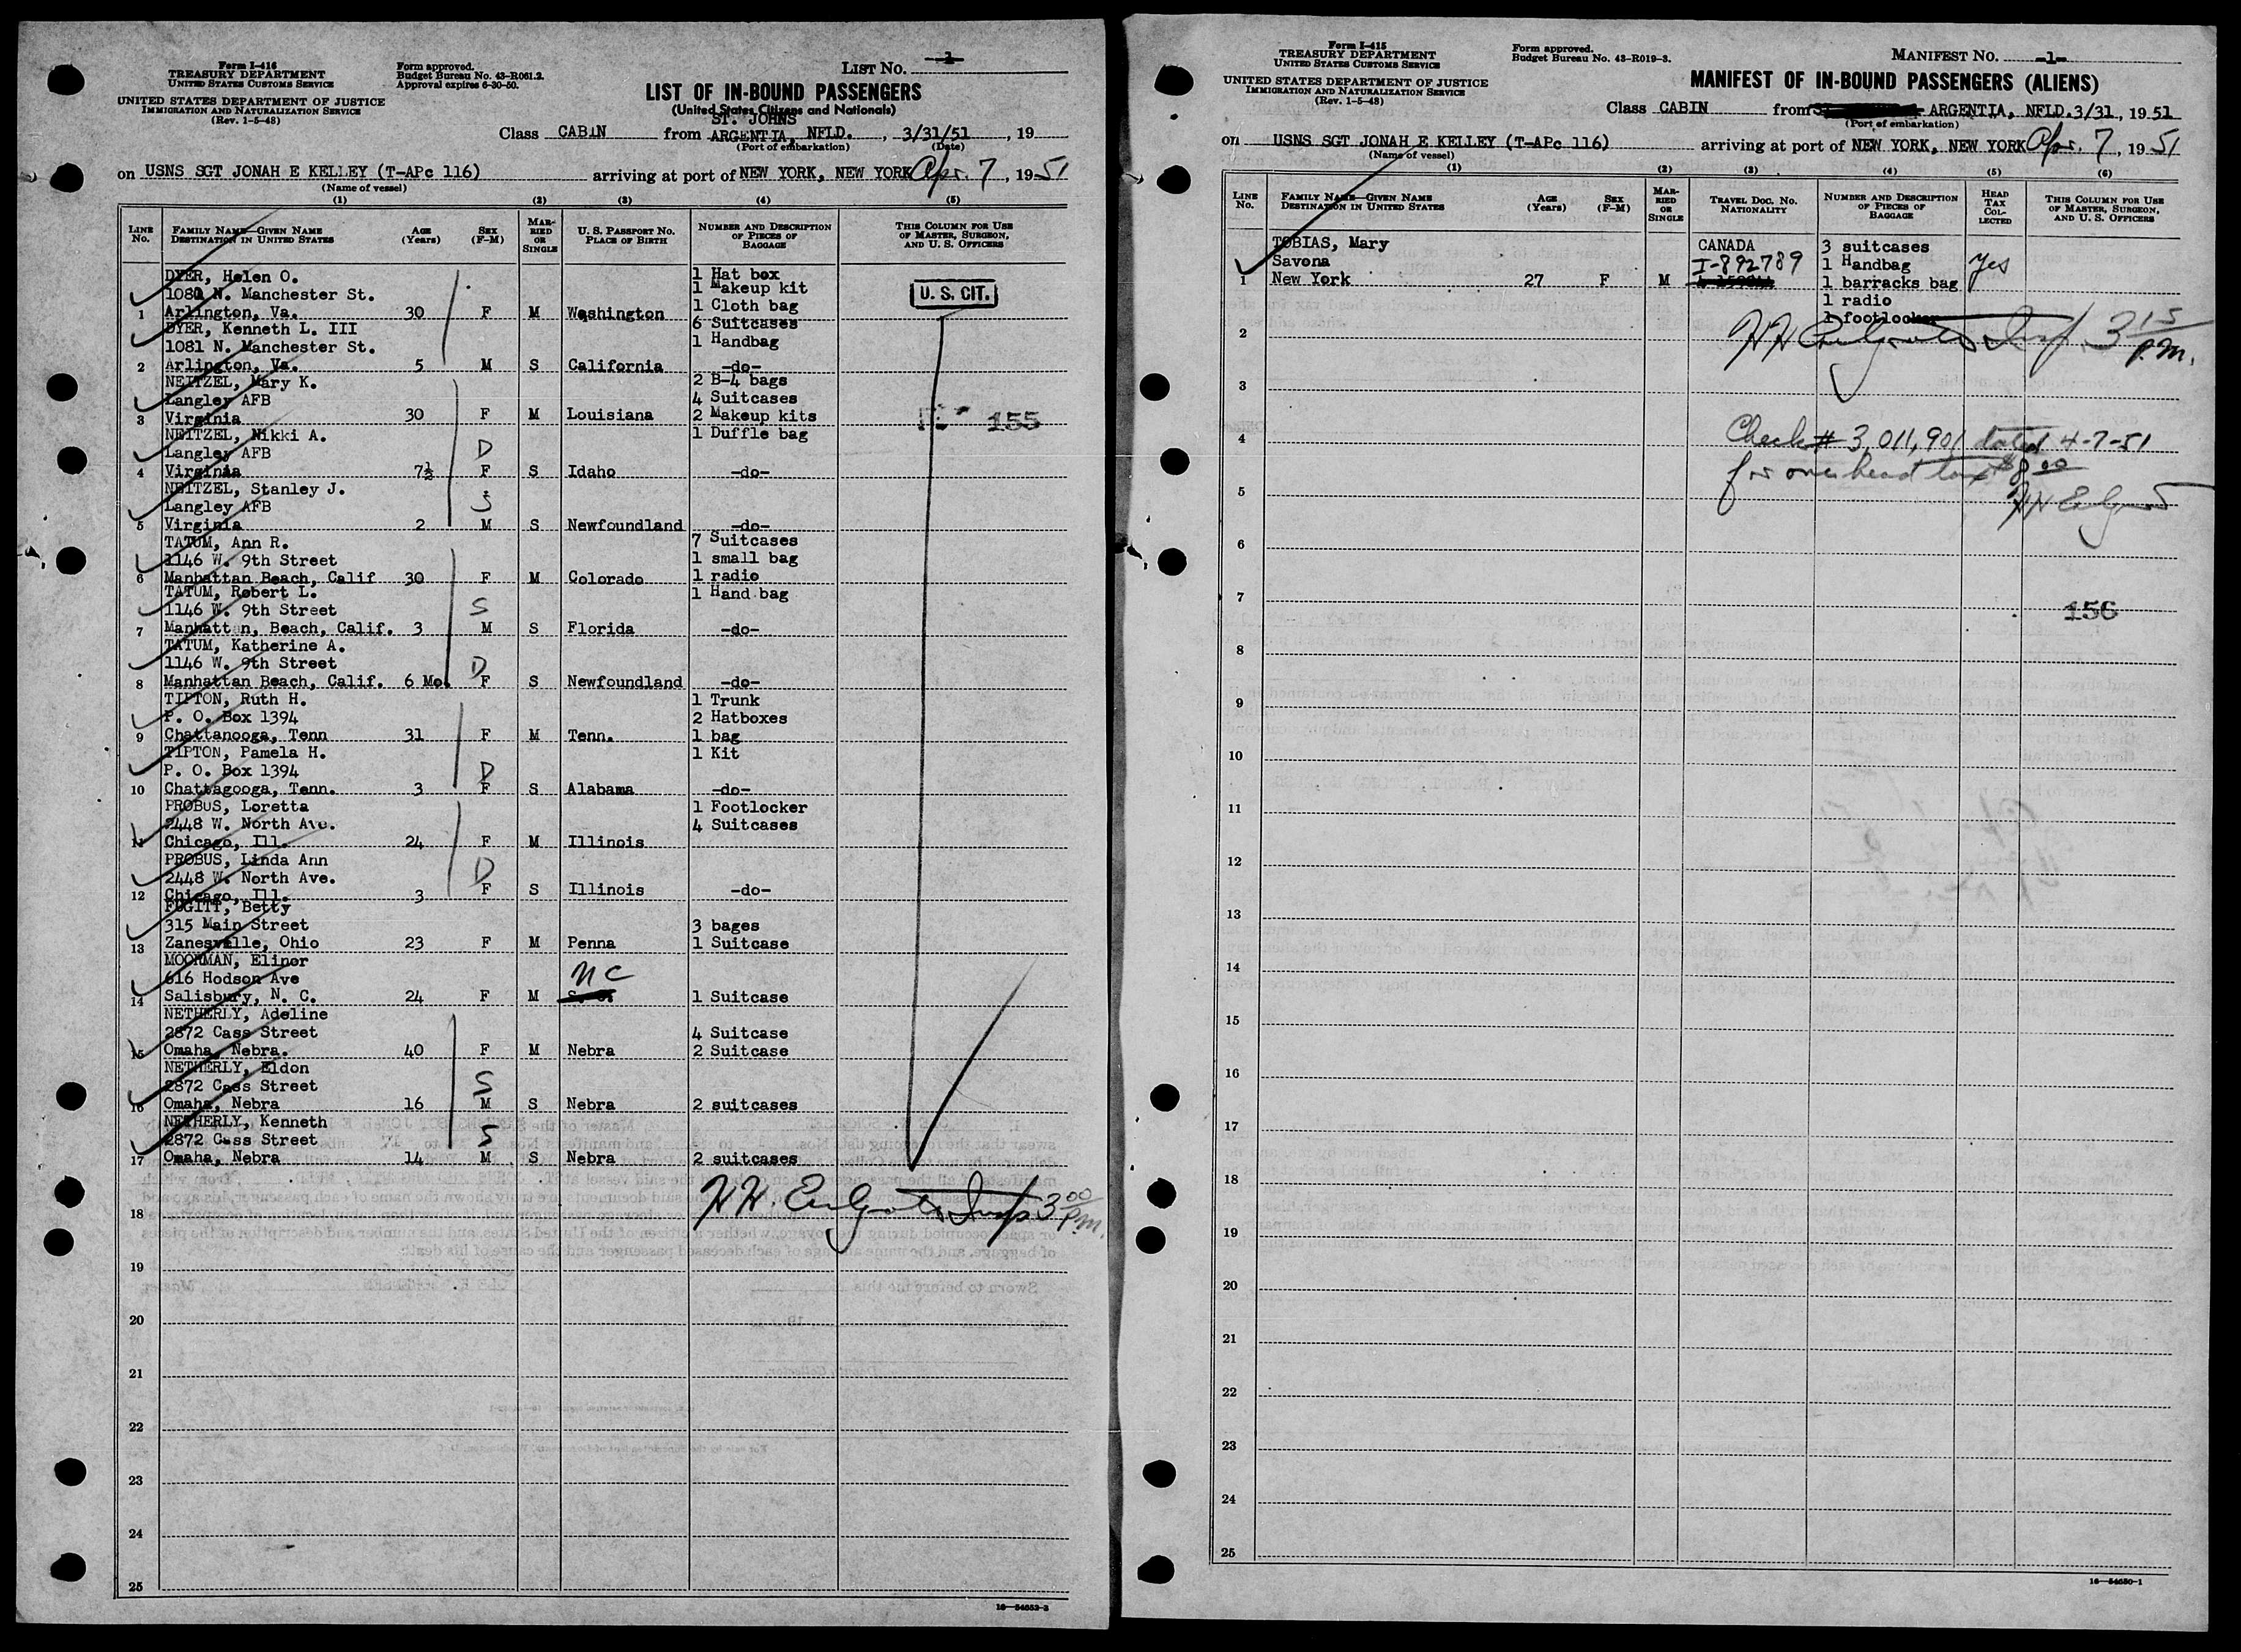 Form I-416
TREASURY DEPARTMENT
UNITED STATES CUSTOMS SERVICE
UNITED STATES DEPARTMENT OF JUSTICE
IMMIGRATION AND NATURALIZATION SERVICE
(Rev. 1-5-48)
Form approved.
Budget Bureau No. 43-R061.2.
Approval expires 6-30-50.
LIST No. -1-
LIST OF IN-BOUND PASSENGERS
(United States Citizens and Nationals)
ST. JOHNS
Class CABIN from ARGENTIA, NFLD. , 3/31/51 , 19
(Port of embarkation) (Date)
on USNS SGT JONAH E KELLEY (T-APc 116) arriving at port of NEW YORK, NEW YORK Apr. 7, 1951
(Name of vessel)
(1) (2) (3) (4) (5)
LINE No. FAMILY NAME—GIVEN NAME DESTINATION IN UNITED STATES AGE (Years) SEX (F-M) MARRIED OR SINGLE U. S. PASSPORT NO. PLACE OF BIRTH NUMBER AND DESCRIPTION OF PIECES OF BAGGAGE THIS COLUMN FOR USE OF MASTER, SURGEON, AND U. S. OFFICERS
DYER, Helen O. 1 Hat box
1081 N. Manchester St. 1 Makeup kit U. S. CIT.
1 Arlington, Va. 30 F M Washington 1 Cloth bag
DYER, Kenneth L. III 6 Suitcases
1081 N. Manchester St. 1 Handbag
2 Arlington, Va. 5 M S California -do-
NEITZEL, Mary K. 2 B-4 bags
Langley AFB 4 Suitcases
3 Virginia 30 F M Louisiana 2 Makeup kits 155
NEITZEL, Nikki A. 1 Duffle bag
Langley AFB D
4 Virginia 7½ F S Idaho -do-
NEITZEL, Stanley J.
Langley AFB S
5 Virginia 2 M S Newfoundland -do-
TATUM, Ann R. 7 Suitcases
1146 W. 9th Street 1 small bag
6 Manhattan Beach, Calif 30 F M Colorado 1 radio
TATUM, Robert L. 1 Hand bag
1146 W. 9th Street S
7 Manhattan, Beach, Calif. 3 M S Florida -do-
TATUM, Katherine A.
1146 W. 9th Street D
8 Manhattan Beach, Calif. 6 Mo. F S Newfoundland -do-
TIPTON, Ruth H. 1 Trunk
P. O. Box 1394 2 Hatboxes
9 Chattanooga, Tenn 31 F M Tenn. 1 bag
TIPTON, Pamela H. 1 Kit
P. O. Box 1394 D
10 Chattagooga, Tenn. 3 F S Alabama -do-
PROBUS, Loretta 1 Footlocker
2448 W. North Ave. 4 Suitcases
11 Chicago, Ill. 24 F M Illinois
PROBUS, Linda Ann
2448 W. North Ave. D
12 Chicago, Ill. 3 F S Illinois -do-
FUGITT, Betty
315 Main Street 3 bages
13 Zanesville, Ohio 23 F M Penna 1 Suitcase
MOORMAN, Elinor
616 Hodson Ave NC
14 Salisbury, N. C. 24 F M 1 Suitcase
NETHERLY, Adeline
2872 Cass Street 4 Suitcase
15 Omaha, Nebra. 40 F M Nebra 2 Suitcase
NETHERLY, Eldon
2872 Cass Street S
16 Omaha, Nebra 16 M S Nebra 2 suitcases
NETHERLY, Kenneth
2872 Cass Street S
17 Omaha, Nebra 14 M S Nebra 2 suitcases
18 3 00 P.M.
19
20
21
22
23
24
25
16—54652-3
Form I-415
TREASURY DEPARTMENT
UNITED STATES CUSTOMS SERVICE
UNITED STATES DEPARTMENT OF JUSTICE
IMMIGRATION AND NATURALIZATION SERVICE
(Rev. 1-5-48)
Form approved.
Budget Bureau No. 43-R019-3.
MANIFEST No. -1-
MANIFEST OF IN-BOUND PASSENGERS (ALIENS)
Class CABIN from ARGENTIA, NFLD. 3/31, 1951
(Port of embarkation)
on USNS SGT JONAH E KELLEY (T-APc 116) arriving at port of NEW YORK, NEW YORK Apr. 7, 1951
(Name of vessel)
(1) (2) (3) (4) (5) (6)
LINE No. FAMILY NAME—GIVEN NAME DESTINATION IN UNITED STATES AGE (Years) SEX (F-M) MARRIED OR SINGLE TRAVEL DOC. NO. NATIONALITY NUMBER AND DESCRIPTION OF PIECES OF BAGGAGE HEAD TAX COLLECTED THIS COLUMN FOR USE OF MASTER, SURGEON, AND U. S. OFFICERS
TOBIAS, Mary CANADA 3 suitcases
Savona I-892789 1 Handbag Yes
1 New York 27 F M 1 barracks bag
1 radio
1 footlocker
2 3 15 P.M.
3
4 Check # 3,011,901 dated 4-7-51
for one head tax $8.00
5
6
7 156
8
9
10
11
12
13
14
15
16
17
18
19
20
21
22
23
24
25
16—54650-1